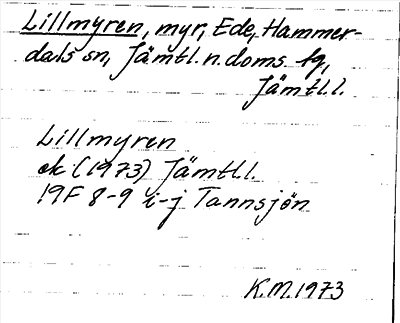 Lillmyren, myr, Ede, Hammer-
dals sn, Jämtl. n. doms. fg,
Jämtl. l.
Lillmyren
ek (1973) Jämtl. l.
19F 8-9 i-j Tannsjön
K.M. 1973